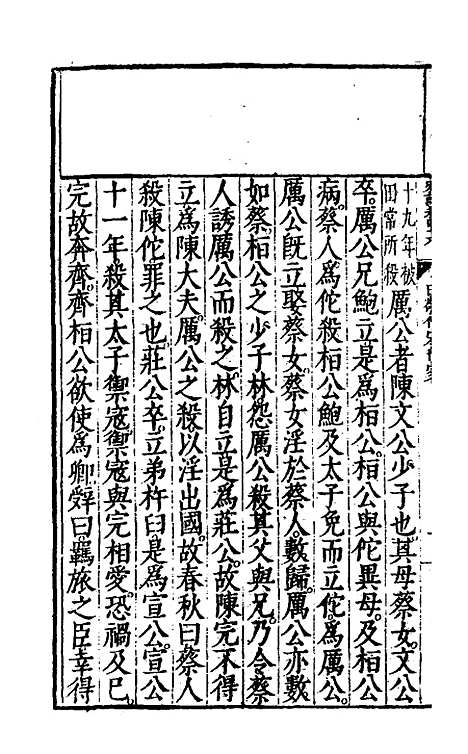 十九年被
田常所殺
厲公者陳文公少子也。其母蔡女。文公
卒。厲公兄鮑立是爲桓公。桓公與佗異母。及桓公
病。蔡人爲佗殺桓公鮑及太子免而立佗。爲厲公。
厲公既立娶蔡女。蔡女淫於蔡人。數歸。厲公亦數
如蔡。桓公之少子林怨厲公殺其父與兄。乃令蔡
人誘厲公而殺之。林自立是爲莊公。故陳完不得
立爲陳大夫。厲公之殺。以淫出國。故春秋曰蔡人
殺陳佗罪之也。莊公卒。立弟杵臼是爲宣公。宣公
十一年。殺其太子禦寇。禦寇與完相愛。恐禍及己。
完故奔齊。齊桓公欲使爲卿。辭曰。羈旅之臣幸得